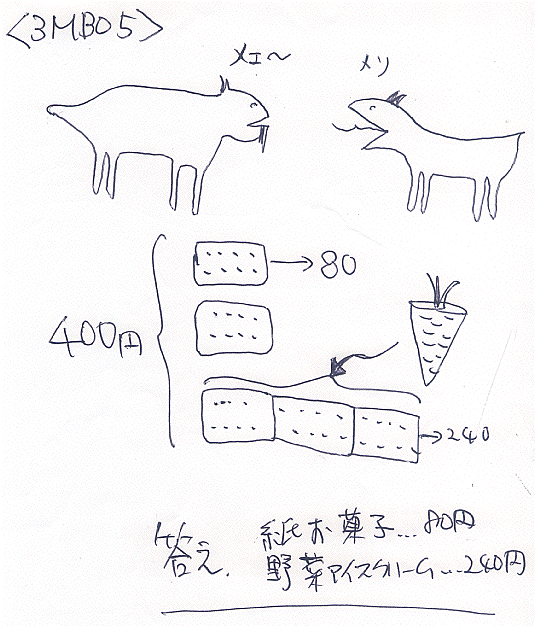 <3MB05>
メエ～ メリ
→80
400円
→240
答え. 紙お菓子…80円
野菜アイスクリーム…240円